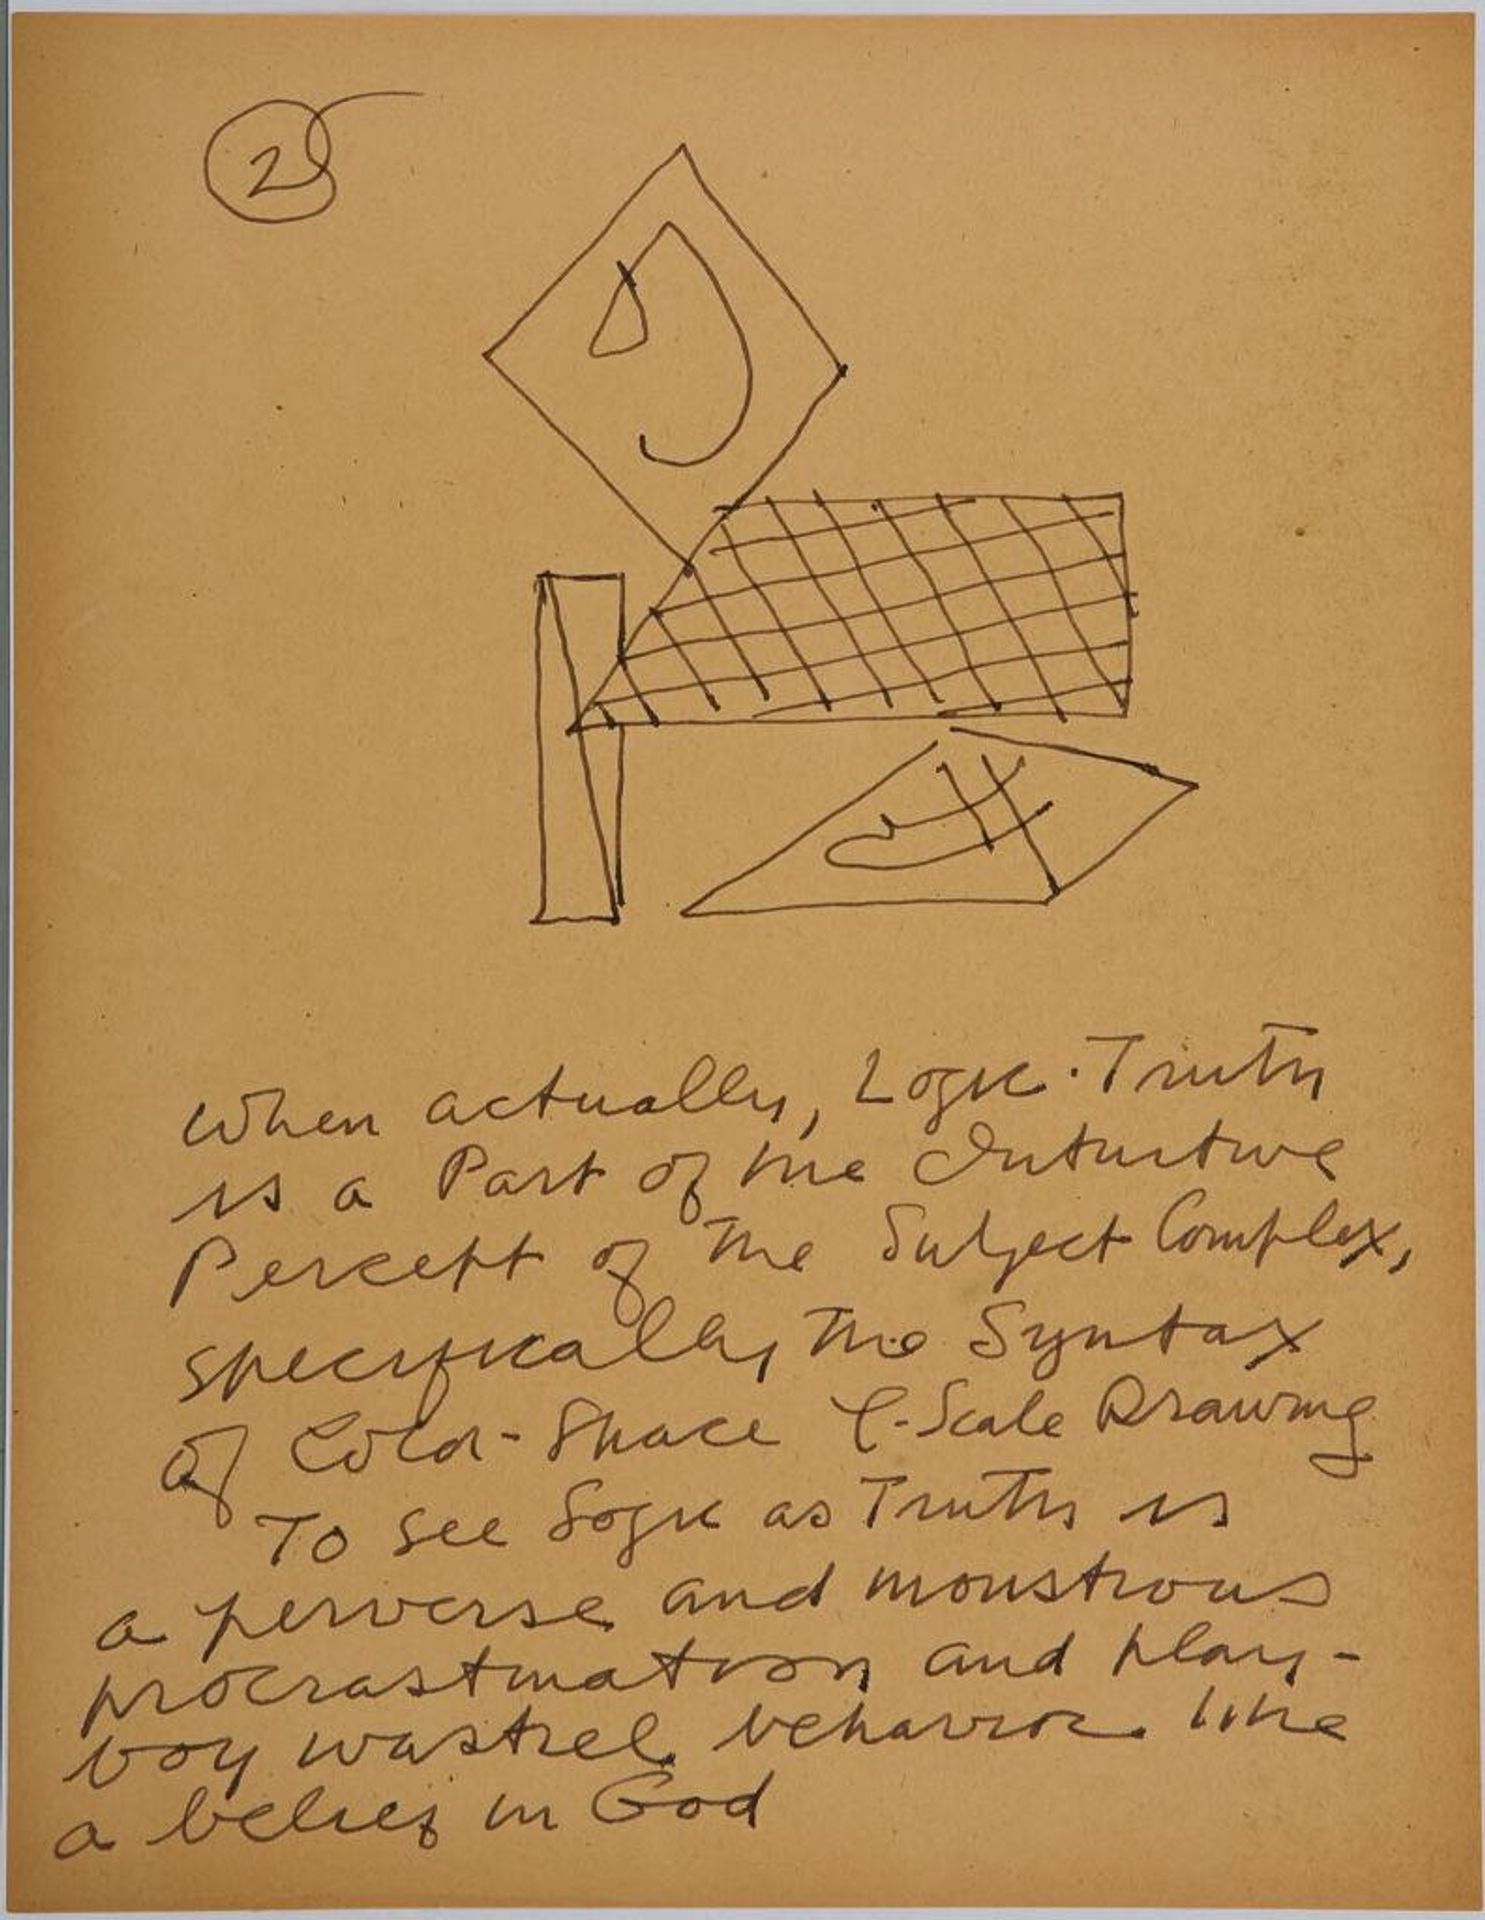 2
When actually, Logic-Truth
is a Part of the Intuitive
Percept of The Subject Complex,
specifically, The Syntax
of Color-Space -Scale Drawing
To see Logic as Truth is
a perverse and monstrous
procrastination and play-
boy wastrel behavior like
a belief in God